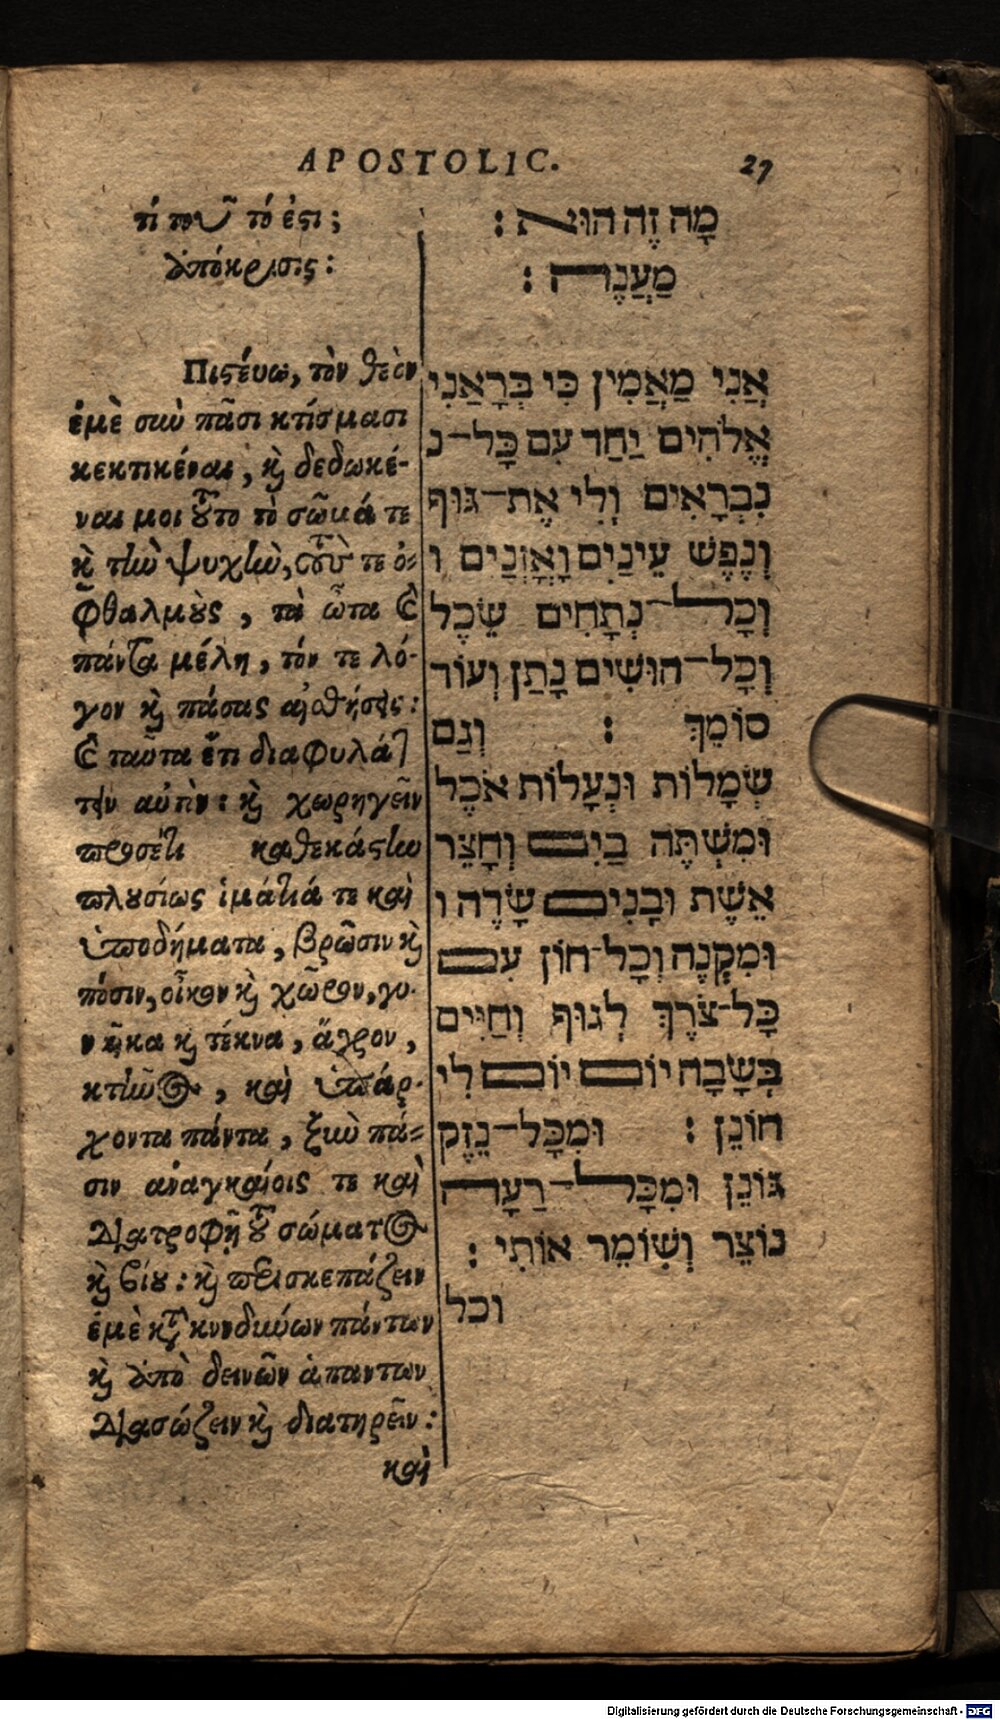 APOSTOLIC. 27
τί τοῦτό ἐστι;
ἀπόκρισις:
Πιστεύω, τὸν θεὸν
ἐμὲ σὺν πᾶσι κτίσμασι
κεκτικέναι, καὶ δεδωκέ-
ναι μοι τοῦτο τὸ σῶμά τε
καὶ τὴν ψυχὴν, τούς τε ὀ-
φθαλμοὺς, τὰ ὦτα καὶ
πάντα μέλη, τόν τε λό-
γον καὶ πάσας αἰσθήσεις:
καὶ ταῦτα ἔτι διαφυλάτ
τειν αὐτὸν: καὶ χωρηγεῖν
προσέτι καθεκάστην
πλουσίως ἱμάτιά τε καὶ
ὑποδήματα, βρῶσιν καὶ
πόσιν, οἶκον καὶ χῶρον, γυ-
ναῖκα καὶ τέκνα, ἄγρον,
κτῆνος, καὶ ὑπάρ-
χοντα πάντα, ξὺν πά-
σιν ἀναγκαίοις τε καὶ
διατροφῇ τοῦ σώματος
καὶ βίου: καὶ περισκεπάζειν
ἐμὲ κατὰ κινδύνων πάντων
καὶ ἀπὸ δεινῶν ἁπαντων
διασώζειν καὶ διατηρεῖν:
καὶ
מָה זֶה הוּא :
מַעֲנֶה :
אֲנִי מַאֲמִין כִּי בְּרָאַנִי
אֱלֹהִים יַחַד עִם כָּל־נ
נִבְרָאִים וְלִי אֶת־גּוּף
וְנֶפֶשׁ עֵינַיִם וְאָזְנַיִם ו
וְכָל־נְתָחִים שֵׂכֶל
וְכָל־חוּשִׁים נָתַן וְעוֹד
סוֹמֵךְ : וְגַם
שְׂמָלוֹת וּנְעָלוֹת אֹכֶל
וּמִשְׁתֶּה בַּיִם וְחָצֵר
אֵשֶׁת וּבָנִים שָׂדֶה ו
וּמִקְנֶה וְכָל־הוֹן עִם
כָּל־צֹרֶךְ לְגוּף וְחַיִּים
בְּשָׂבָה יוֹם יוֹם לִי
חוֹנֵן : וּמִכָּל־נֵזֶק
גּוֹנֵן וּמִכָּל־רָעָה
נוֹצֵר וְשׁוֹמֵר אוֹתִי :
וכל
Digitalisierung gefördert durch die Deutsche Forschungsgemeinschaft - DFG